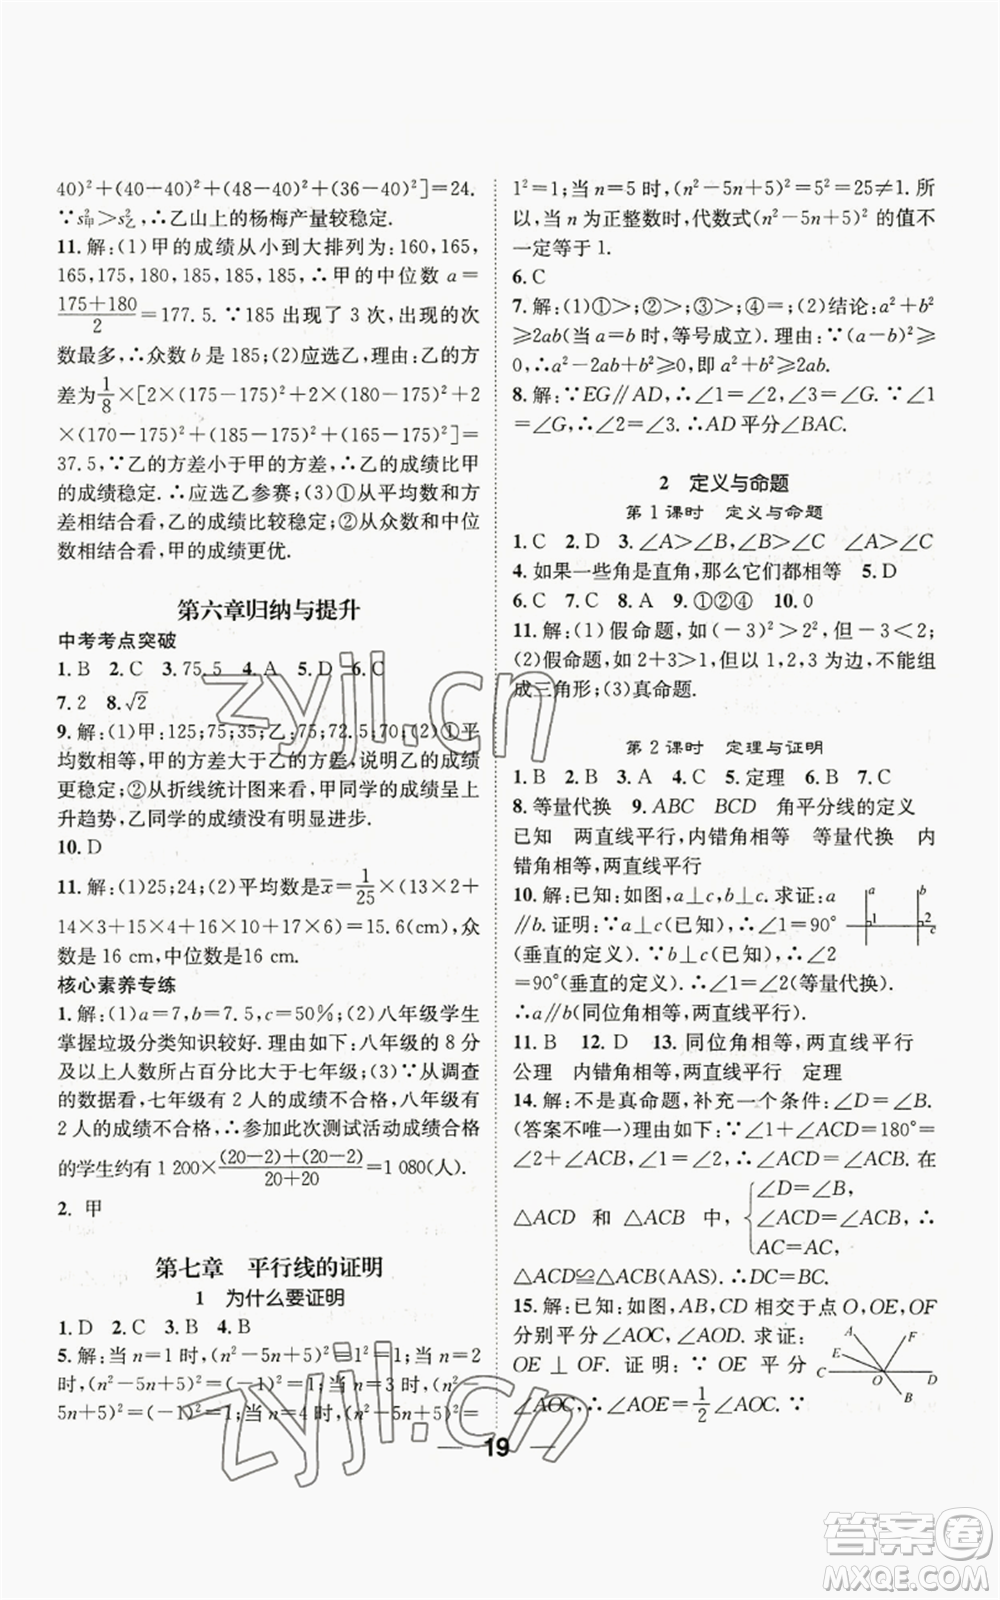 40)²+(40-40)²+(48-40)²+(36-40)²]=24.
∵s²甲>s²乙,∴乙山上的杨梅产量较稳定.
11.解:(1)甲的成绩从小到大排列为:160,165,
165,175,180,185,185,185,∴甲的中位数a=
(175+180)/2=177.5.∵185 出现了 3 次,出现的次
数最多,∴众数 b 是 185;(2)应选乙,理由:乙的方
差为1/8×[2×(175-175)²+2×(180-175)²+2
×(170-175)²+(185-175)²+(165-175)²]=
37.5,∵乙的方差小于甲的方差,∴乙的成绩比甲
的成绩稳定.∴应选乙参赛;(3)①从平均数和方
差相结合看,乙的成绩比较稳定;②从众数和中位
数相结合看,甲的成绩更优.
第六章归纳与提升
中考考点突破
1.B 2.C 3.75.5 4.A 5.D 6.C
7.2 8.√2
9.解:(1)甲:125;75;35;乙:75;72.5;70;(2)①平
均数相等,甲的方差大于乙的方差,说明乙的成绩
更稳定;②从折线统计图来看,甲同学的成绩呈上
升趋势,乙同学的成绩没有明显进步.
10.D
11.解:(1)25;24;(2)平均数是x̄=1/25×(13×2+
14×3+15×4+16×10+17×6)=15.6(cm),众
数是16 cm,中位数是16 cm.
核心素养专练
1.解:(1)a=7,b=7.5,c=50%;(2)八年级学生
掌握垃圾分类知识较好.理由如下:八年级的 8 分
及以上人数所占百分比大于七年级;(3)∵从调查
的数据看,七年级有 2 人的成绩不合格,八年级有
2 人的成绩不合格,∴参加此次测试活动成绩合格
的学生约有 1 200×((20-2)+(20-2))/(20+20)=1 080(人).
2. 甲
第七章 平行线的证明
1 为什么要证明
1.D 2.C 3.B 4.B
5.解:当 n=1 时,(n²-5n+5)²=1²=1;当 n=2
时,(n²-5n+5)²=(-1)²=1;当 n=3 时,(n²-
5n+5)²=(-1)²=1;当 n=4 时,(n²-5n+5)²=
1²=1;当 n=5 时,(n²-5n+5)²=5²=25≠1.所
以,当 n 为正整数时,代数式(n²-5n+5)² 的值不
一定等于 1.
6.C
7.解:(1)①>;②>;③>;④=;(2)结论:a²+b²
≥2ab(当 a=b 时,等号成立).理由:∵(a-b)²≥
0,∴a²-2ab+b²≥0,即 a²+b²≥2ab.
8.解:∵EG∥AD,∴∠1=∠2,∠3=∠G.∵∠1
=∠G,∴∠2=∠3.∴AD平分∠BAC.
2 定义与命题
第 1 课时 定义与命题
1.C 2.D 3.∠A>∠B,∠B>∠C ∠A>∠C
4.如果一些角是直角,那么它们都相等 5.D
6.C 7.C 8.A 9.①②④ 10.0
11.解:(1)假命题,如(-3)²>2²,但-3<2;
(2)假命题,如 2+3>1,但以 1,2,3 为边,不能组
成三角形;(3)真命题.
第 2 课时 定理与证明
1.B 2.B 3.A 4.C 5.定理 6.B 7.C
8.等量代换 9.ABC BCD 角平分线的定义
已知 两直线平行,内错角相等 等量代换 内
错角相等,两直线平行
10.解:已知:如图,a⊥c,b⊥c.求证:a
∥b.证明:∵a⊥c(已知),∴∠1=90°
(垂直的定义).∵b⊥c(已知),∴∠2
=90°(垂直的定义).∴∠1=∠2(等量代换).
∴a∥b(同位角相等,两直线平行).
a b 1 2 c
11.B 12.D 13.同位角相等,两直线平行
公理 内错角相等,两直线平行 定理
14.解:不是真命题,补充一个条件:∠D=∠B.
(答案不唯一)理由如下:∵∠1+∠ACD=180°=
∠2+∠ACB,∠1=∠2,∴∠ACD=∠ACB.在
△ACD 和 △ACB 中,{∠D=∠B,
∠ACD=∠ACB,∴
AC=AC,
△ACD≌△ACB(AAS).∴DC=BC.
15.解:已知:如图,AB,CD 相交于点O,OE,OF
分别平分∠AOC,∠AOD.求证:
OE⊥OF.证明:∵OE 平分
∠AOC,∴∠AOE=1/2∠AOC.∵
A F E C O D B
19
zyjl.cn
zyjl.cn
答案圈
MXQE.COM